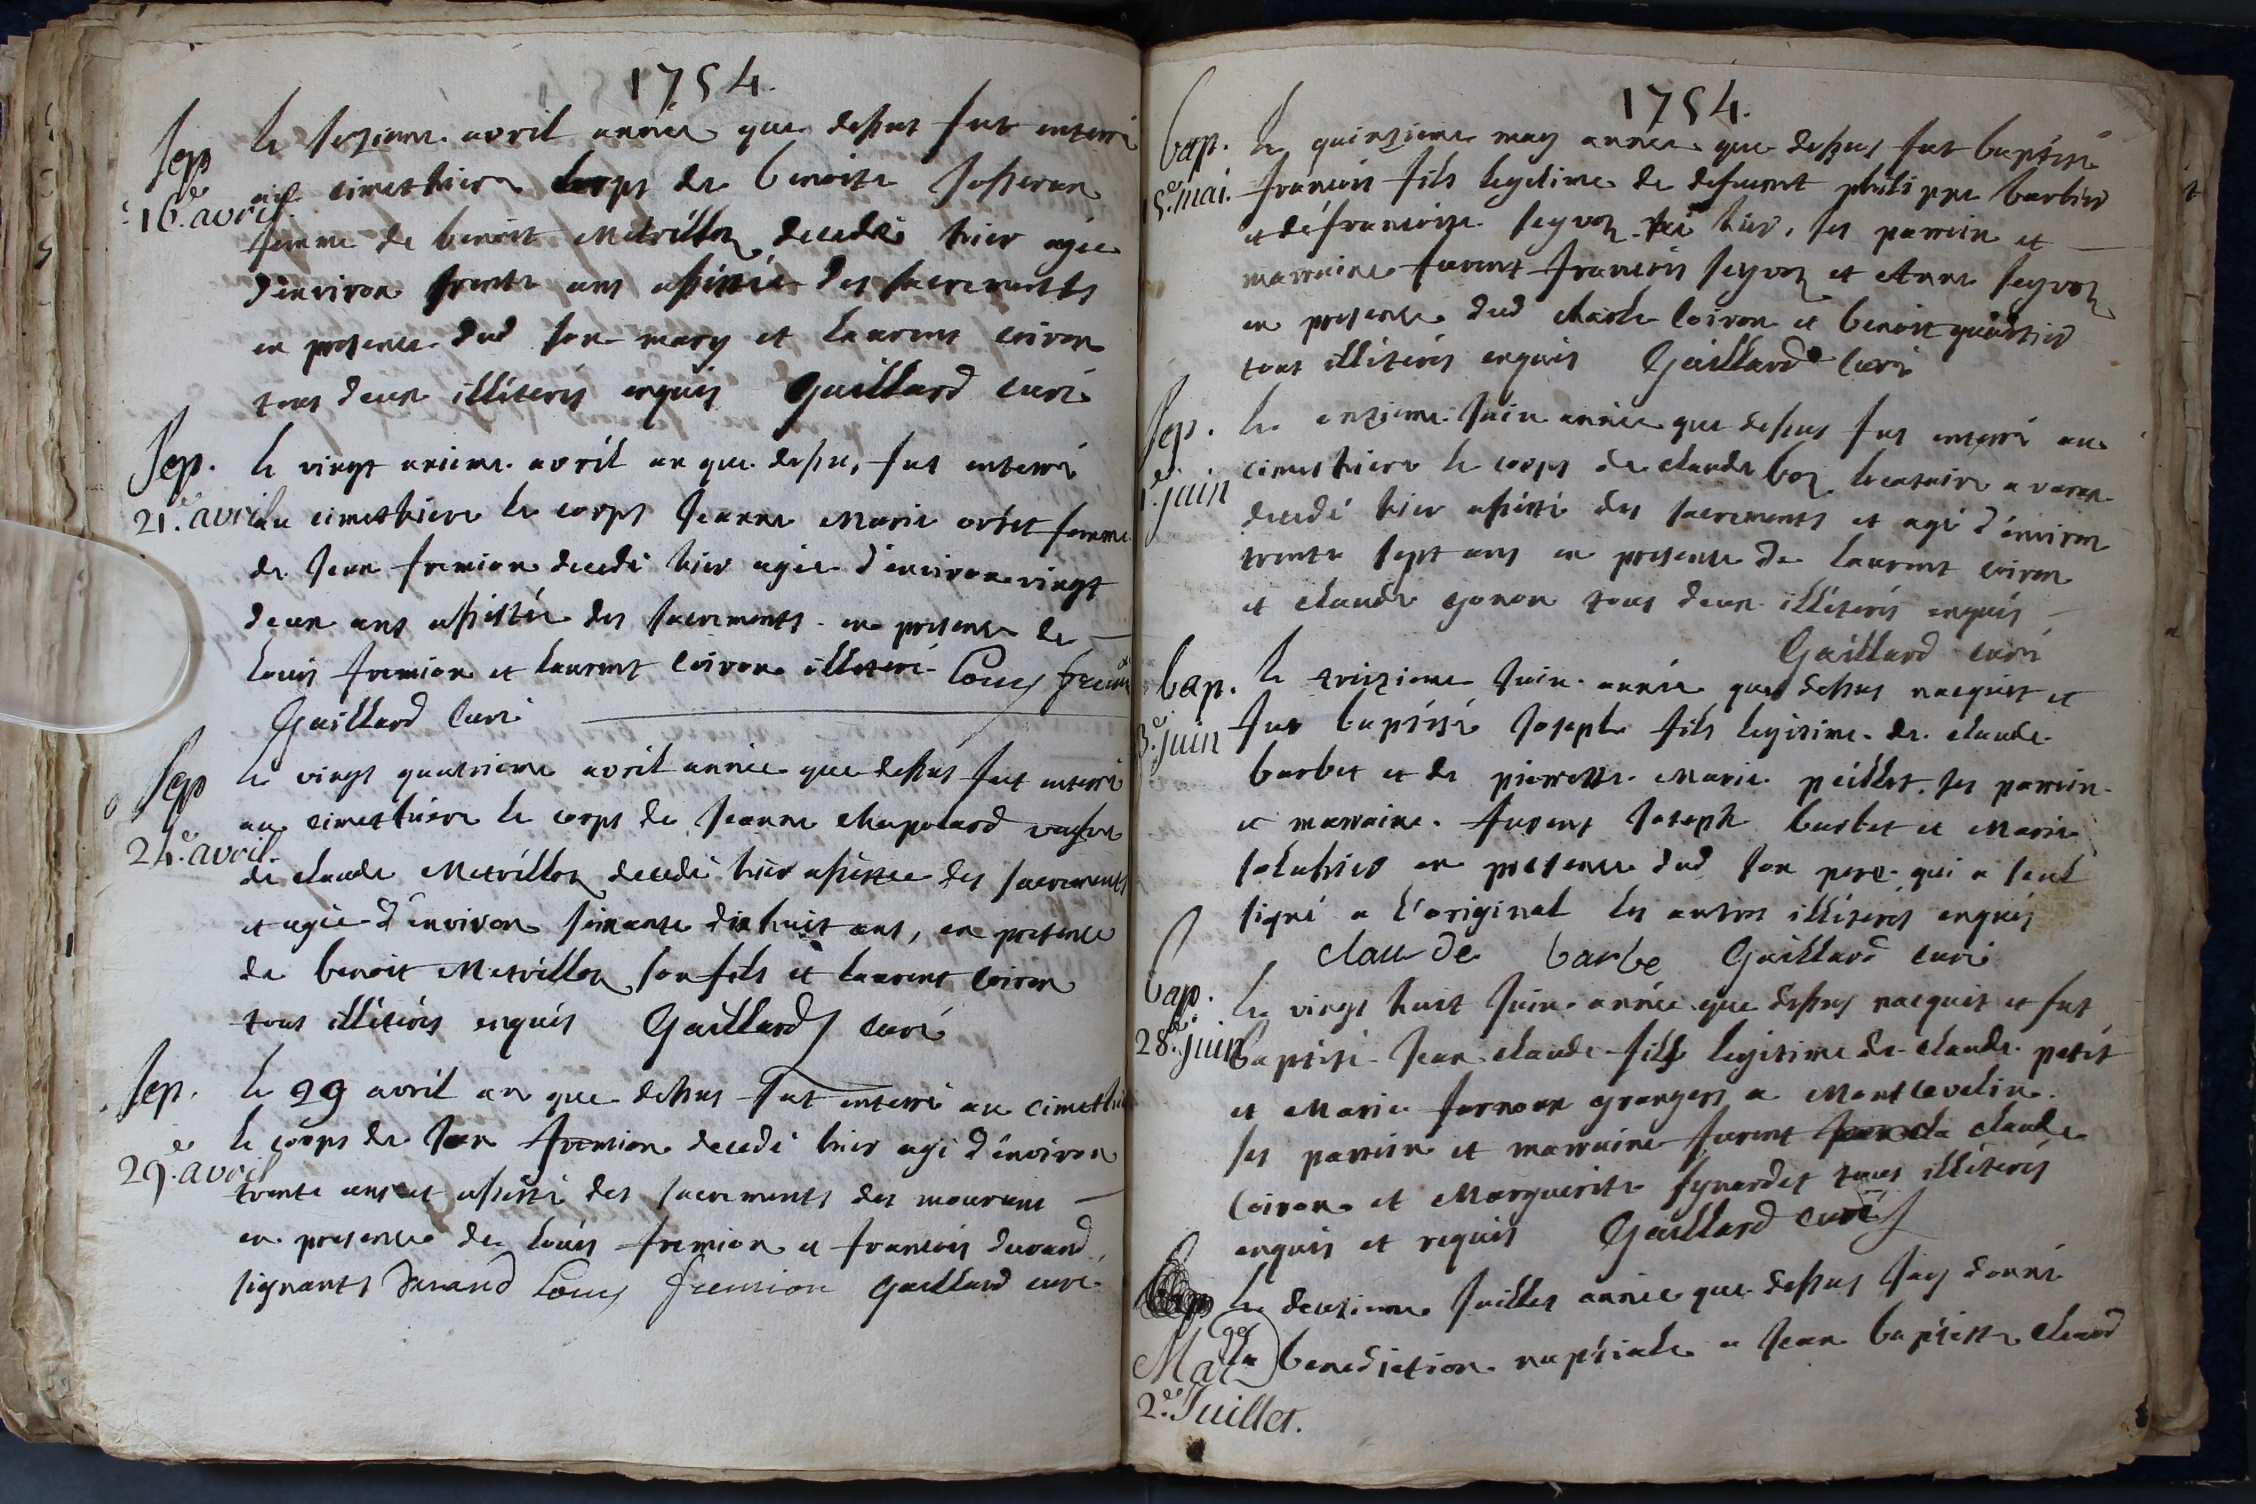 1754.
Sep le sezieme avril année que dessus fut enterré
16.e avril. au cimethiere le corps de benoite Josseran
femme de benoit Metrillon decedé hier agée
d'environ trente ans assistée des sacrements
en presence dud son mary et laurent coiron
tous deux illiterés enquis Gaillard curé
Sep. le vingt unieme avril an que dessu, fut enterré
21.e avril au cimethiere le corps Jeanne Marie orset femme
de Jean fremion decedé hier agée d'environ vingt
deux ans assistée des sacrements en presence de
Louis fremion et laurent Coiron illiteré Louis fremion
Gaillard Curé
Sep le vingt quatrieme avril année que dessus fut enterré
24.e avril. au cimethiere le corps de Jeanne Chapolard
de claude Metrillon decedé hier assistée des sacrements
et agée d'environ soixante dix huit ans, en presence
de benoit Metrillon son fils et laurent coiron
tous illiterés enquis Gaillard curé
Sep. le 29 avril an que dessus fut enterré au cimethiere
29.e avril le corps de Jean fremion decedé hier agé d'environ
trente ans et assisté des sacrements des mourant
en presence de Louis fremion et francois durand
signants Durand Louis fremion Gaillard curé
1754.
bap. le quinzieme may année que dessus fut baptisé
15.e mai. francois fils legitime de defunt philippe barbier
et de francoise seyvoz né hier, ses parrin et
marraine furent francois seyvoz et Anne seyvoz
en presence dud charle Coiron et benoit
tous illiterés enquis Gaillard Curé
Sep. le onzieme Juin année que dessus fut enterré au
juin cimethiere le corps de claude boz locataire a
decedé hier assisté des sacrements et agé d'environ
trente sept ans en presence de laurent coiron
et claude gonon tous deux illiterés enquis
Gaillard curé
bap. le treizieme Juin année que dessus nacquit et
3.e juin fut baptisé Joseph fils legitime de claude
barbet et de pierrette Marie peillet. ses parrin
et marraine furent Joseph barbet et Marie
en presence dud son pere qui a seul
signé a l'original les autres illiterés enquis
claude barbe Gaillard curé
bap. le vingt huit Juin année que dessus nacquit et fut
28.e juin baptisé Jean claude fils legitime de claude petit
et Marie furnon grangers a Montcevelin.
ses parrin et marraine furent claude
Coiron et Marguerite synardet tous illiterés
enquis et requis Gaillard curé
le deuxieme Juillet année que dessus Jay donné
Mar.ge la benediction nuptiale a Jean baptiste
2.e Juillet.